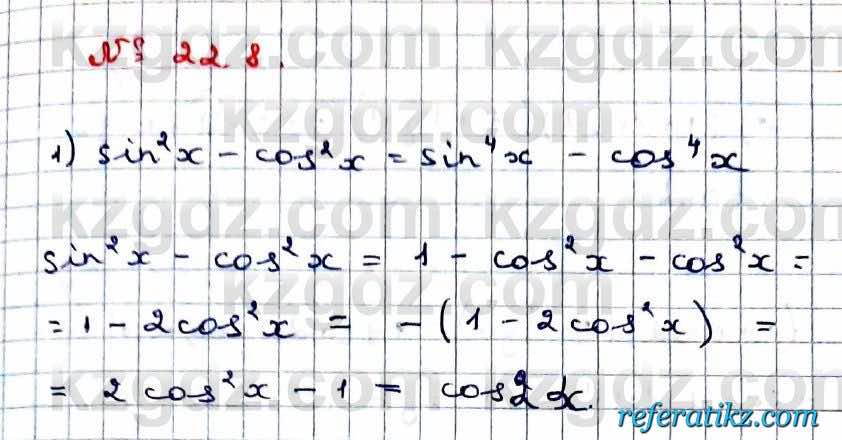 № 22.8.
1) sin²x - cos²x = sin⁴x - cos⁴x
sin²x - cos²x = 1 - cos²x - cos²x =
= 1 - 2cos²x = -(1 - 2cos²x) =
= 2cos²x - 1 = cos2x.
referatikz.com
kzgdz.com
kzgdz.com
kzgdz.com
kzgdz.com
kzgdz.com
kzgdz.com